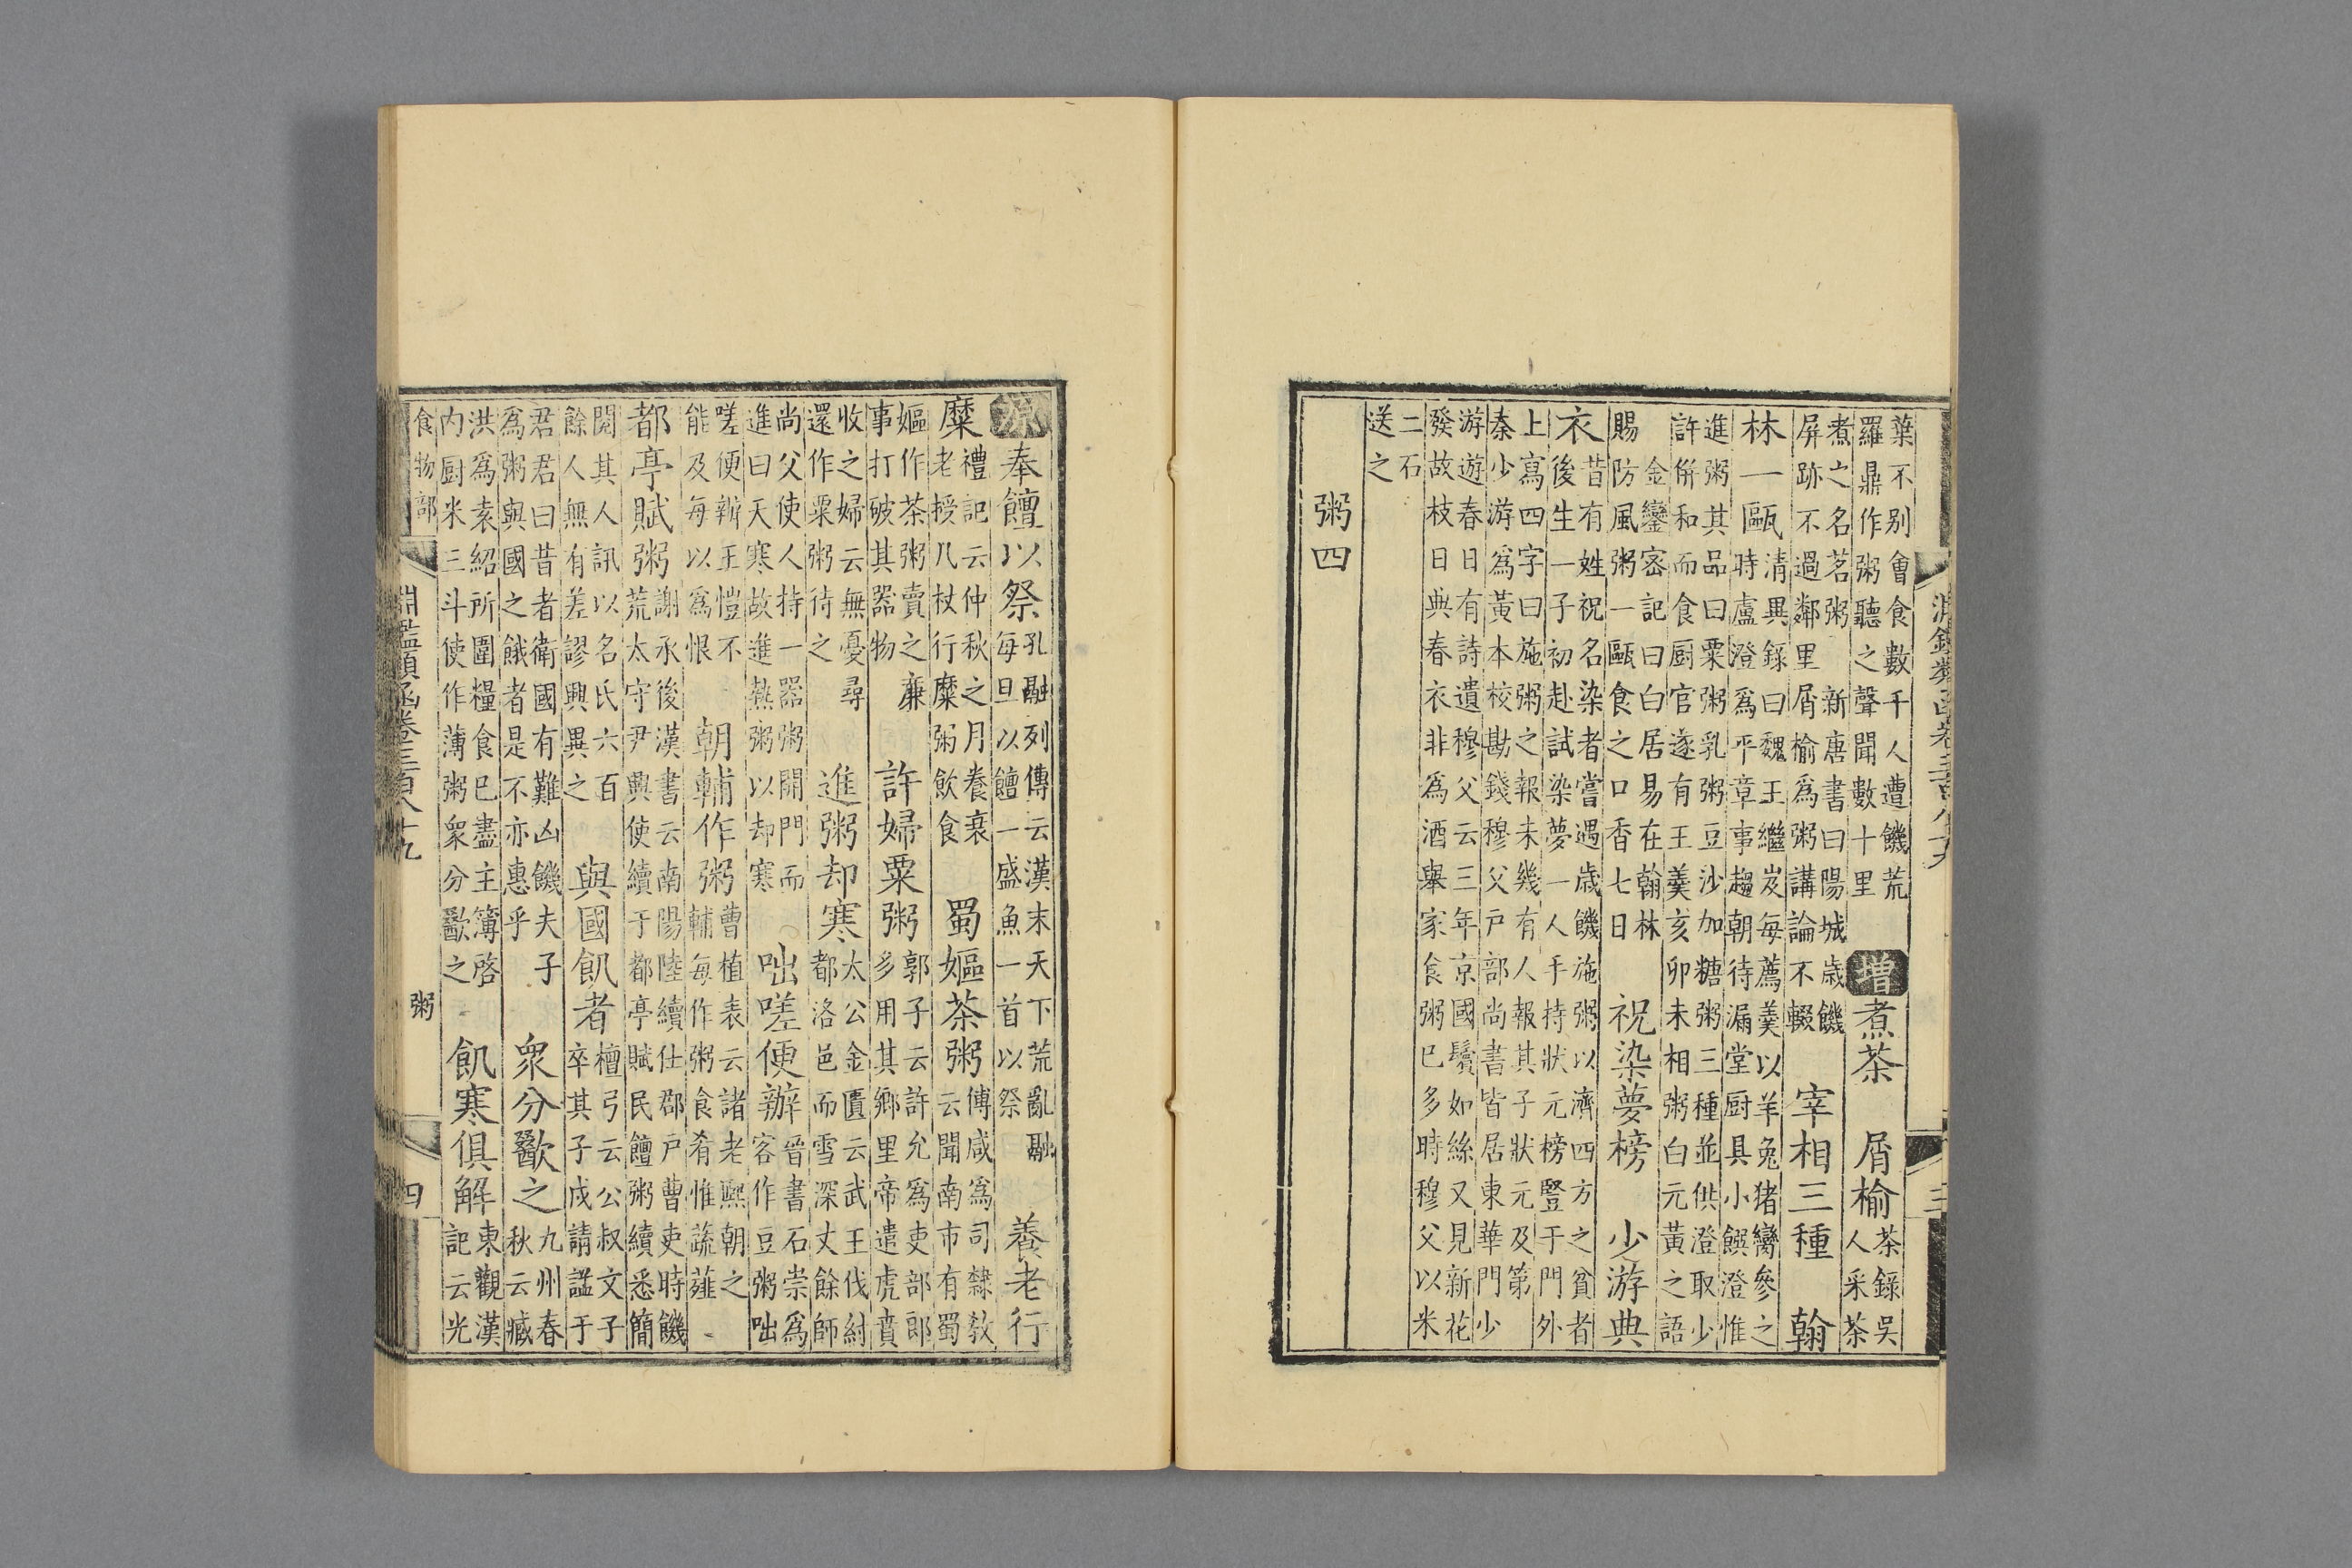 淵鑑類函卷三百八十九 三
葉不別會食數千人遭饑荒
羅鼎作粥聽之聲聞數十里
增煮茶 屑榆
茶錄吳
人采茶
煮之名茗粥 新唐書曰陽城歲饑
屏跡不過鄰里屑榆爲粥講論不輟
宰相三種 翰
林一甌
清異錄曰魏王繼岌每薦羹以羊兔猪臠參之
時盧澄爲平章事趨朝待漏堂厨具小饌澄惟
進粥其品曰粟粥乳粥豆沙加糖粥三種並供澄取少
許併和而食厨官遂有王羹亥卯未相粥白元黃之語
賜
金鑾密記曰白居易在翰林
防風粥一甌食之口香七日
祝染夢榜 少游典
衣
昔有姓祝名染者嘗遇歲饑施粥以濟四方之貧者
後生一子初赴試染夢一人手持狀元榜竪于門外
上寫四字曰施粥之報未幾有人報其子狀元及第
秦少游爲黃本校勘錢穆父戶部尚書皆居東華門少
游遊春日有詩遺穆父云三年京國鬢如絲又見新花
發故枝日典春衣非爲酒舉家食粥已多時穆父以米
二石
送之
粥四
源奉饘以祭
孔融列傳云漢末天下荒亂融
每旦以饘一盛魚一首以祭
養老行
糜
禮記云仲秋之月養衰
老授几杖行糜粥飲食
蜀嫗茶粥
傅咸爲司隸教
云聞南市有蜀
嫗作茶粥賣之廉
事打破其器物
許婦粟粥
郭子云許允爲吏部郎
多用其鄉里帝遣虎賁
收之婦云無憂尋
還作粟粥待之
進粥却寒
太公金匱云武王伐紂
都洛邑而雪深丈餘師
尚父使人持一器粥開門而
進曰天寒故進熱粥以却寒
咄嗟便辦
晉書石崇爲
客作豆粥咄
嗟便辦王愷不
能及每以爲恨
朝輔作粥
曹植表云諸老熙朝之
輔每作粥食肴惟蔬薤
都亭賦粥
謝承後漢書云南陽陸續仕郡戶曹吏時饑
荒太守尹興使續于都亭賦民饘粥續悉簡
閱其人訊以名氏六百
餘人無有差謬興異之
與國飢者
檀弓云公叔文子
卒其子戍請謚于
君君曰昔者衛國有難凶饑夫子
爲粥與國之餓者是不亦惠乎
衆分歠之
九州春
秋云臧
洪爲袁紹所圍糧食已盡主簿啓
內厨米三斗使作薄粥衆分歠之
飢寒俱解
東觀漢
記云光
食物部 淵鑑類函卷三百八十九 粥 四